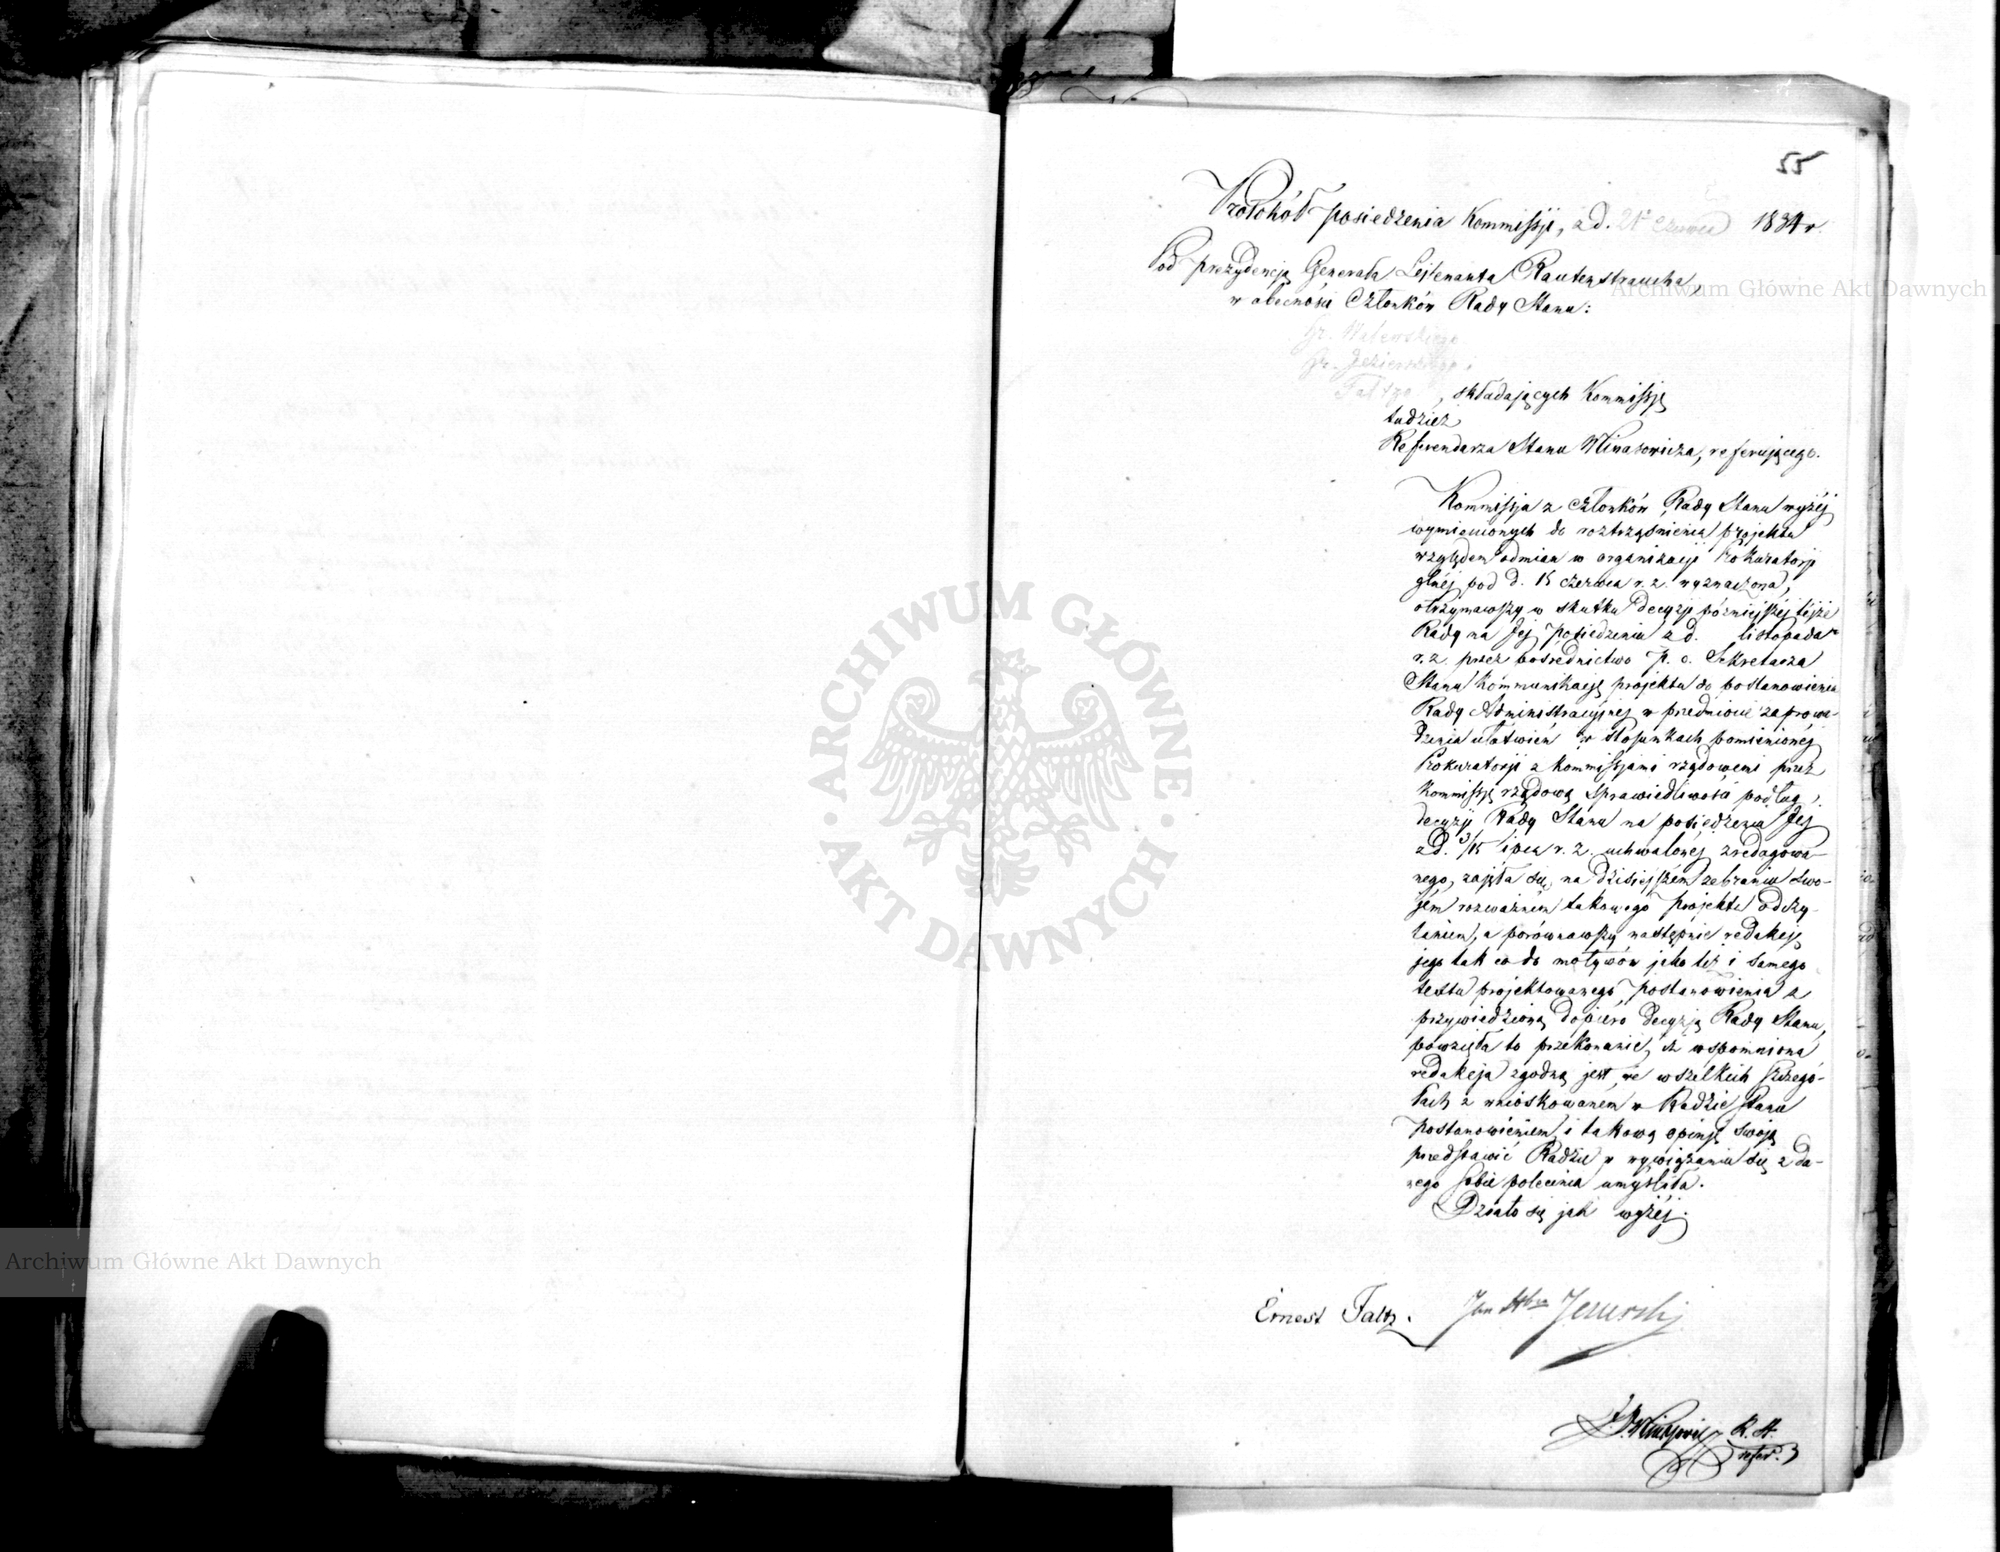 55
Protokół posiedzenia Kommissyi, z d. 21 Czerwca 1834 r.
Pod prezydencją Generała Lejtenanta Rautenstraucha,
w obecności Członków Rady Stanu:
Hr. Walewskiego
Hr. Jezierskiego i
Faltza, składających Kommissyę
tudzież
Referendarza Stanu Minasowicza, referującego.
Kommissya z Członków Rady Stanu wyżéj
wymienionych do roztrząśnienia projektu
względem odmian w organizacyi Prokuratoryi
glnéj pod d. 15 czerwca r. z. wyznaczona,
otrzymawszy w skutku decyzyi późniejszéj téjże
Rady na Jej posiedzeniu z d. listopada
r. z. przez pośrednictwo p. o. Sekretarza
Stanu kommunikacyę projektu do postanowienia
Rady Administracyjnej w przedmiocie zaprowa-
dzenia ułatwień w stosunkach pomienionéj
Prokuratoryi z Kommissyami rządowemi przez
Kommissyę rządową Sprawiedliwości podług
decyzyi Rady Stanu na posiedzeniu Jej
z d. 3/15 lipca r. z. uchwalonej zredagowa-
nego, zajęła się na dzisiejszém zebraniu swo-
jém rozważném takowego projektu odczy-
taniem, a porównawszy następnie redakcyę
jego tak co do motywów jako téż i samego
textu projektowanego postanowienia z
przywiedzioną dopiero decyzją Rady Stanu,
powzięła to przekonanie, iż wspomniona
redakcja zgodną jest we wszelkich szczegó-
łach z wnioskowanem w Radzie Stanu
postanowieniem, i takową opinję swoją
przedstawić Radzie w wywiązaniu się z da-
nego sobie polecenia umyśliła.
Działo się jak wyżéj.
Ernest Faltz. Jan Hbia Jezierski
Minasowicz R. St.
refer.
Archiwum Główne Akt Dawnych
Archiwum Główne Akt Dawnych
ARCHIWUM GŁÓWNE · AKT DAWNYCH ·